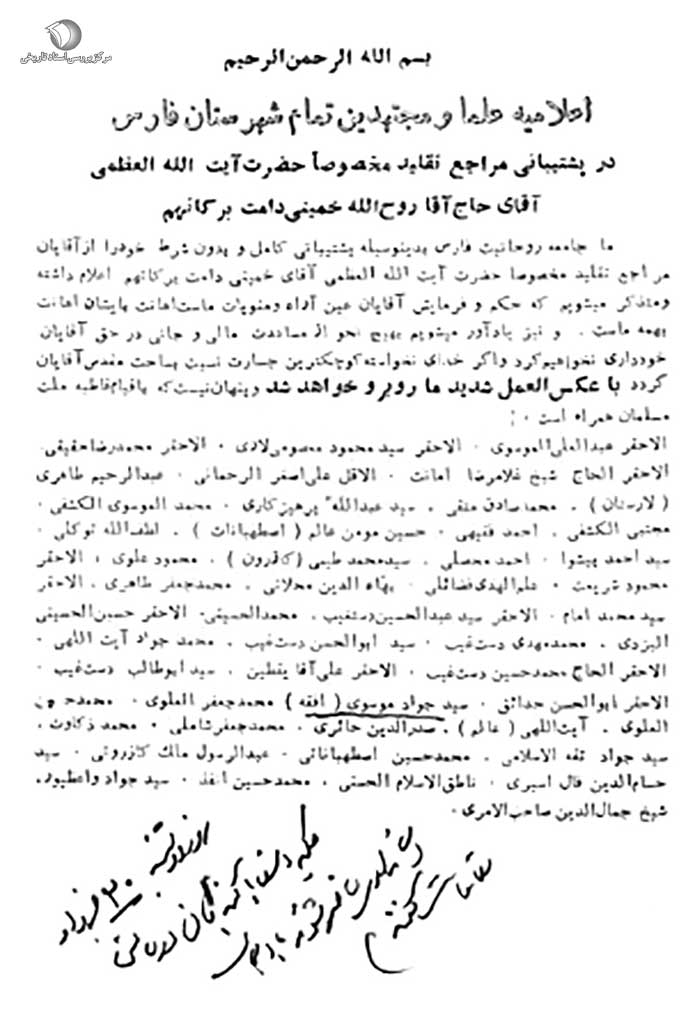 مرکز بررسی اسناد تاریخی
بسم الله الرحمن الرحیم
اعلامیه علما و مجتهدین تمام شهرستان فارس
در پشتیبانی مراجع تقلید مخصوصاً حضرت آیت الله العظمی
آقای حاج آقا روح‌الله خمینی دامت برکاتهم
ما جامعه روحانیت فارس بدینوسیله پشتیبانی کامل و بدون شرط خودرا از آقایان
مراجع تقلید مخصوصا حضرت آیت الله العظمی آقای خمینی دامت برکاتهم اعلام داشته
ومتذکر میشویم که حکم و فرمایش آقایان عین آراء ومنویات ماست اهانت بایشان اهانت
بهمه ماست . و نیز یادآور میشویم بهیچ نحو از مساعدت مالی و جانی در حق آقایان
خودداری نخواهیم کرد واگر خدای نخواسته کوچکترین جسارت نسبت بساحت مقدس آقایان
گردد با عکس‌العمل شدید ما روبرو خواهد شد وپنهان نیست که باقیام قاطبه ملت
مسلمان همراه است .
الاحقر عبدالعلی الموسوی . الاحقر سید محمود معصومی لاری . الاحقر محمدرضا حقیقی .
الاحقر الحاج شیخ غلامرضا امانت . الاقل علی اصغر الرحمانی . عبدالرحیم طاهری
( لارستان ) . محمد صادق متقی . سید عبدالله پرهیزکاری . محمد الموسوی الکشفی .
مجتبی الکشفی . احمد فقیهی . حسین مومن عالم ( اصطهبانات ) . لطف‌الله توکلی .
سید احمد پیشوا . احمد محصلی . سیدمحمد طیبی ( کازرون ) . محمود علوی . الاحقر
محمود شریعت . علم‌الهدی فضائلی . بهاء الدین محلاتی . محمدجعفر طاهری . الاحقر
سید محمد امام . الاحقر سید عبدالحسین دستغیب . محمدالحسینی . الاحقر حسین الحسینی
الیزدی . محمدمهدی دست‌غیب . سید ابوالحسن دست‌غیب . محمد جواد آیت اللهی .
الاحقر الحاج محمدحسین دست‌غیب . الاحقر علی‌آقا یقطین . سید ابوطالب دست‌غیب .
الاحقر ابوالحسن حدائق . سید جواد موسوی ( افقه ) محمدجعفر العلوی . محمد
العلوی . آیت‌اللهی ( عالم ) . صدرالدین حائری . محمدجعفر شاملی . محمد ذکاوت .
سید جواد ثقه الاسلامی . محمدحسین اصطهباناتی . عبدالرسول مالک کازرونی . سید
حسام‌الدین فال اسیری . ناطق الاسلام الحسنی . محمدحسین . سید جواد واعظپور .
شیخ جمال‌الدین صاحب الامری .
روز دوشنبه ۳۰